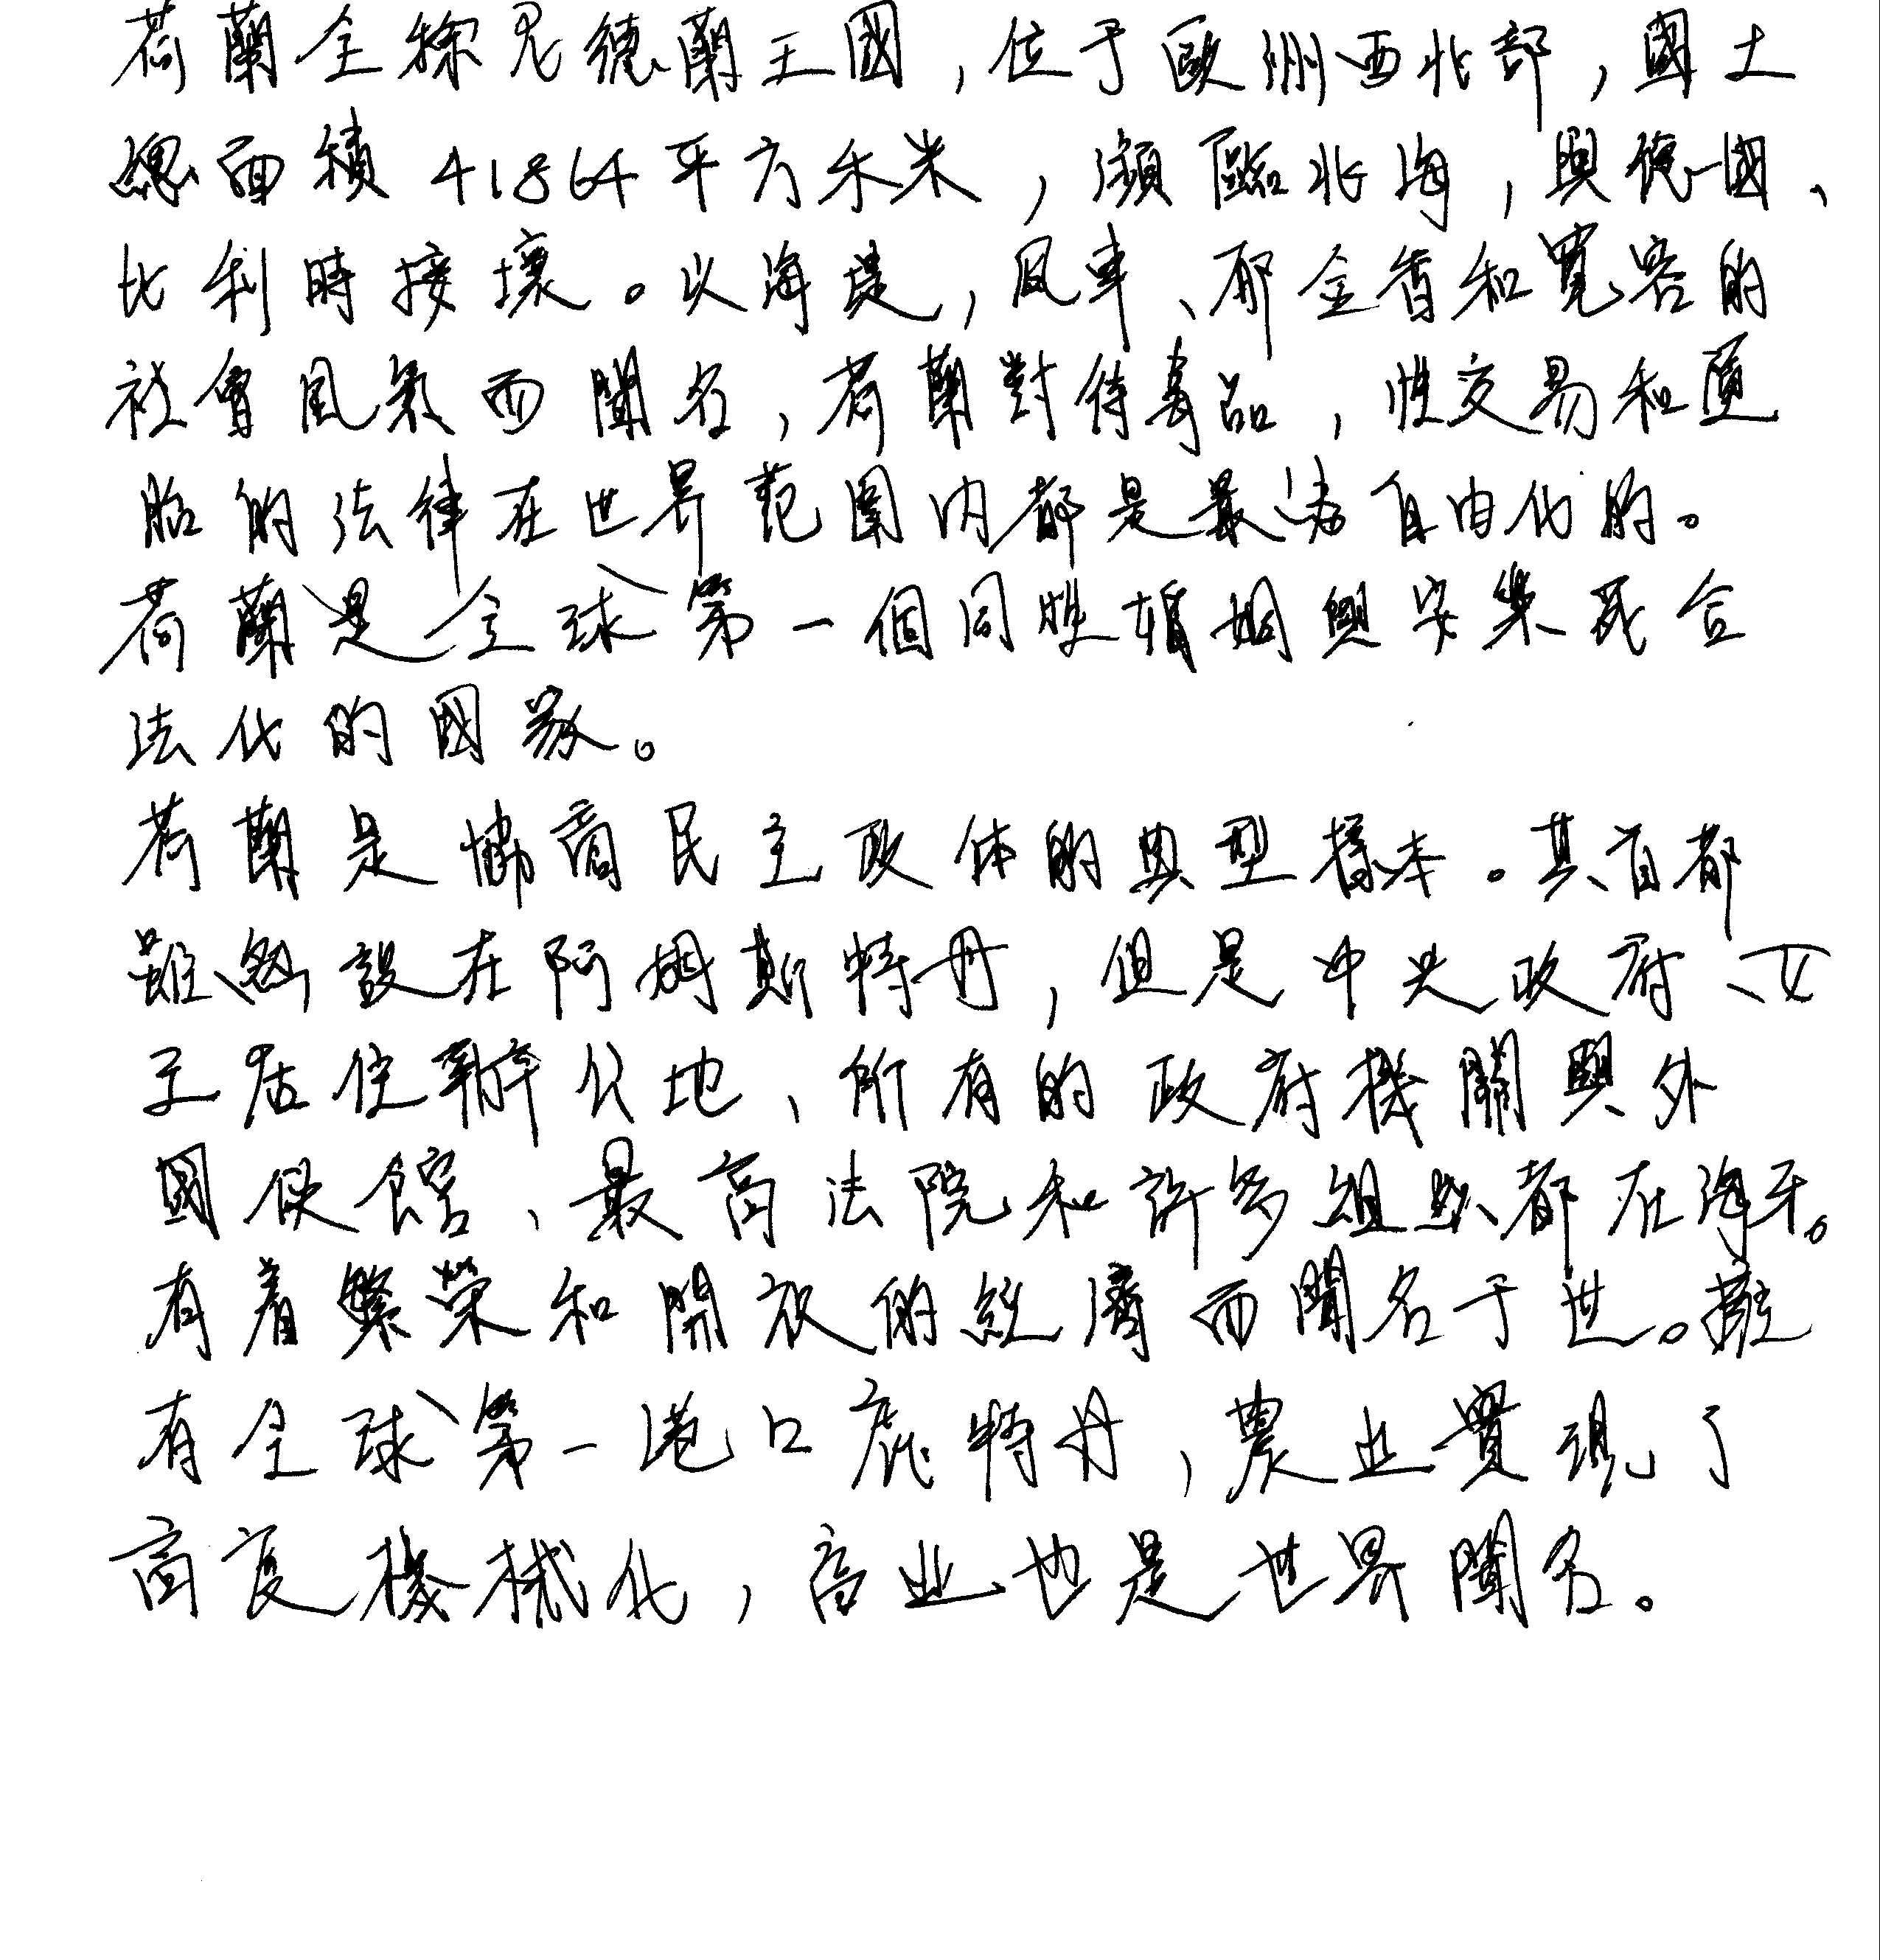 荷蘭全稱尼德蘭王國，位于歐洲西北部，國土
總面積41864平方米米，瀕臨北海，與德國、
比利時接壤。以海堤，風車、郁金香和寬容的
社會風氣而聞名，荷蘭對待毒品，性交易和墮
胎的法律在世界範圍內都是最為自由化的。
荷蘭是全球第一個同性婚姻與安樂死合
法化的國家。
荷蘭是協商民主政体的典型樣本。其首都
雖然設在阿姆斯特丹，但是中央政府、女
王居住辦公地、所有的政府機關與外
國使館、最高法院和許多組織都在海牙。
有着繁榮和開放的經濟而聞名于世。擁
有全球第一港口鹿特丹，農业實現了
高度機械化，商业也是世界聞名。